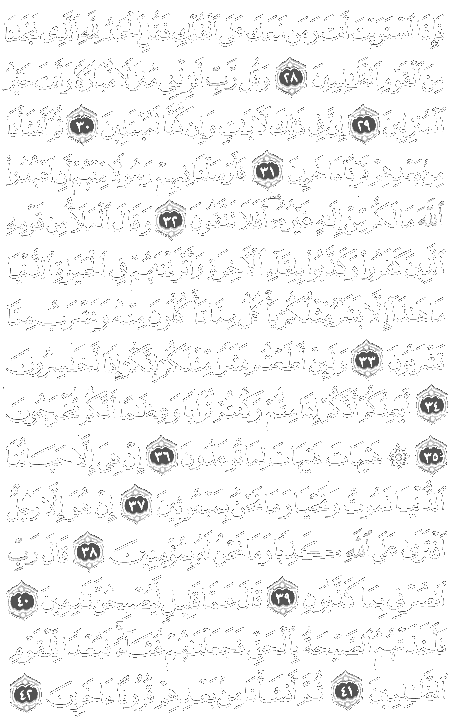 فَإِذَا ٱسْتَوَيْتَ أَنتَ وَمَن مَّعَكَ عَلَى ٱلْفُلْكِ فَقُلِ ٱلْحَمْدُ لِلَّهِ ٱلَّذِى نَجَّىٰنَا
مِنَ ٱلْقَوْمِ ٱلظَّٰلِمِينَ ٢٨ وَقُل رَّبِّ أَنزِلْنِى مُنزَلًا مُّبَارَكًا وَأَنتَ خَيْرُ
ٱلْمُنزِلِينَ ٢٩ إِنَّ فِى ذَٰلِكَ لَءَايَٰتٍ وَإِن كُنَّا لَمُبْتَلِينَ ٣٠ ثُمَّ أَنشَأْنَا
مِنۢ بَعْدِهِمْ قَرْنًا ءَاخَرِينَ ٣١ فَأَرْسَلْنَا فِيهِمْ رَسُولًا مِّنْهُمْ أَنِ ٱعْبُدُوا۟
ٱللَّهَ مَا لَكُم مِّنْ إِلَٰهٍ غَيْرُهُۥٓ أَفَلَا تَتَّقُونَ ٣٢ وَقَالَ ٱلْمَلَأُ مِن قَوْمِهِ
ٱلَّذِينَ كَفَرُوا۟ وَكَذَّبُوا۟ بِلِقَآءِ ٱلْءَاخِرَةِ وَأَتْرَفْنَٰهُمْ فِى ٱلْحَيَوٰةِ ٱلدُّنْيَا
مَا هَٰذَآ إِلَّا بَشَرٌ مِّثْلُكُمْ يَأْكُلُ مِمَّا تَأْكُلُونَ مِنْهُ وَيَشْرَبُ مِمَّا
تَشْرَبُونَ ٣٣ وَلَئِنْ أَطَعْتُم بَشَرًا مِّثْلَكُمْ إِنَّكُمْ إِذًا لَّخَٰسِرُونَ
٣٤ أَيَعِدُكُمْ أَنَّكُمْ إِذَا مِتُّمْ وَكُنتُمْ تُرَابًا وَعِظَٰمًا أَنَّكُم مُّخْرَجُونَ
٣٥ ۞ هَيْهَاتَ هَيْهَاتَ لِمَا تُوعَدُونَ ٣٦ إِنْ هِىَ إِلَّا حَيَاتُنَا
ٱلدُّنْيَا نَمُوتُ وَنَحْيَا وَمَا نَحْنُ بِمَبْعُوثِينَ ٣٧ إِنْ هُوَ إِلَّا رَجُلٌ
ٱفْتَرَىٰ عَلَى ٱللَّهِ كَذِبًا وَمَا نَحْنُ لَهُۥ بِمُؤْمِنِينَ ٣٨ قَالَ رَبِّ
ٱنصُرْنِى بِمَا كَذَّبُونِ ٣٩ قَالَ عَمَّا قَلِيلٍ لَّيُصْبِحُنَّ نَٰدِمِينَ ٤٠
فَأَخَذَتْهُمُ ٱلصَّيْحَةُ بِٱلْحَقِّ فَجَعَلْنَٰهُمْ غُثَآءً فَبُعْدًا لِّلْقَوْمِ
ٱلظَّٰلِمِينَ ٤١ ثُمَّ أَنشَأْنَا مِنۢ بَعْدِهِمْ قُرُونًا ءَاخَرِينَ ٤٢